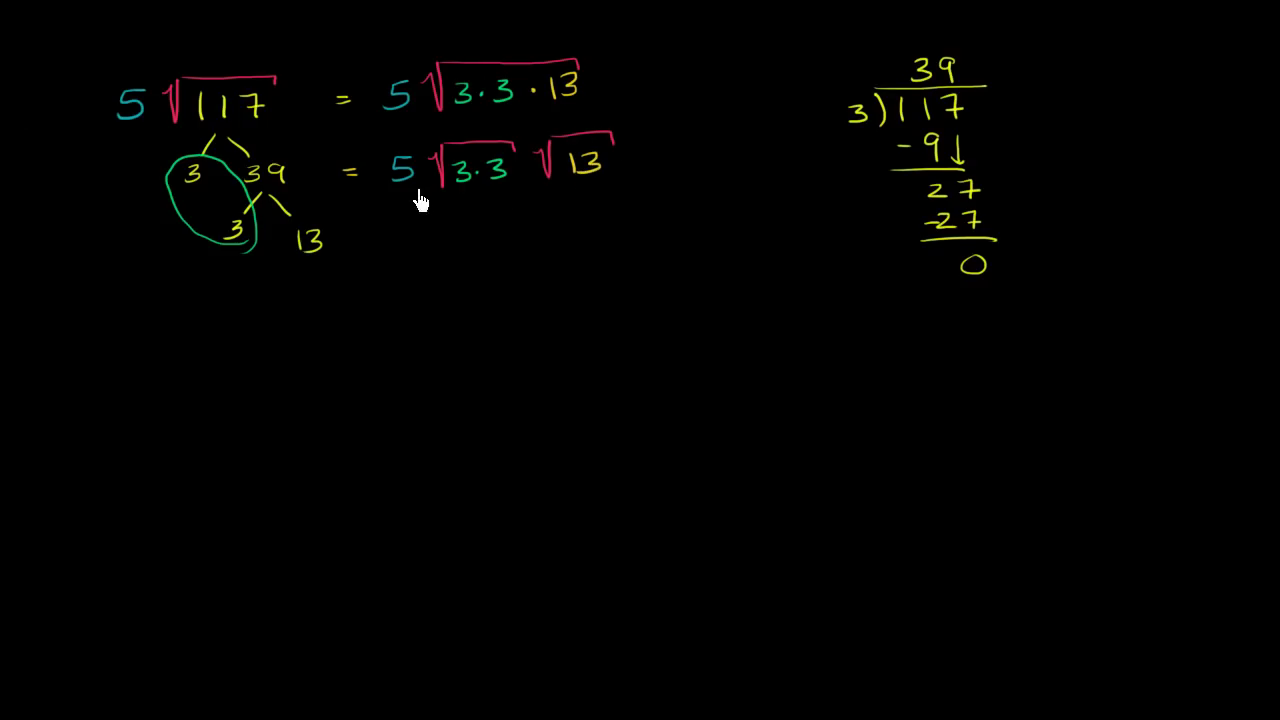 5 √117 = 5 √3·3·13
3 39 = 5 √3·3 √13
3 13
39
3)117
-9↓
27
-27
0